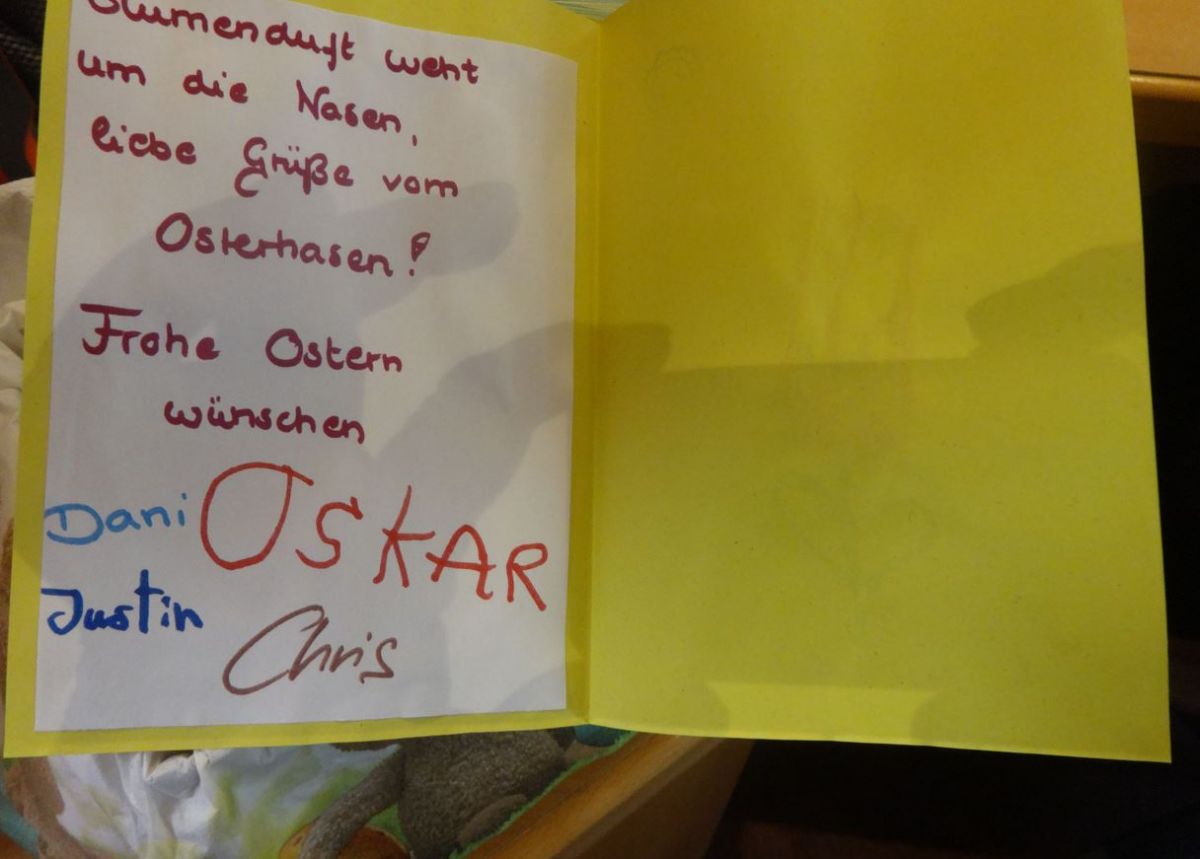 Blumenduft weht
um die Nasen,
liebe Grüße vom
Osterhasen!
Frohe Ostern
wünschen
Dani OSKAR
Justin Chris